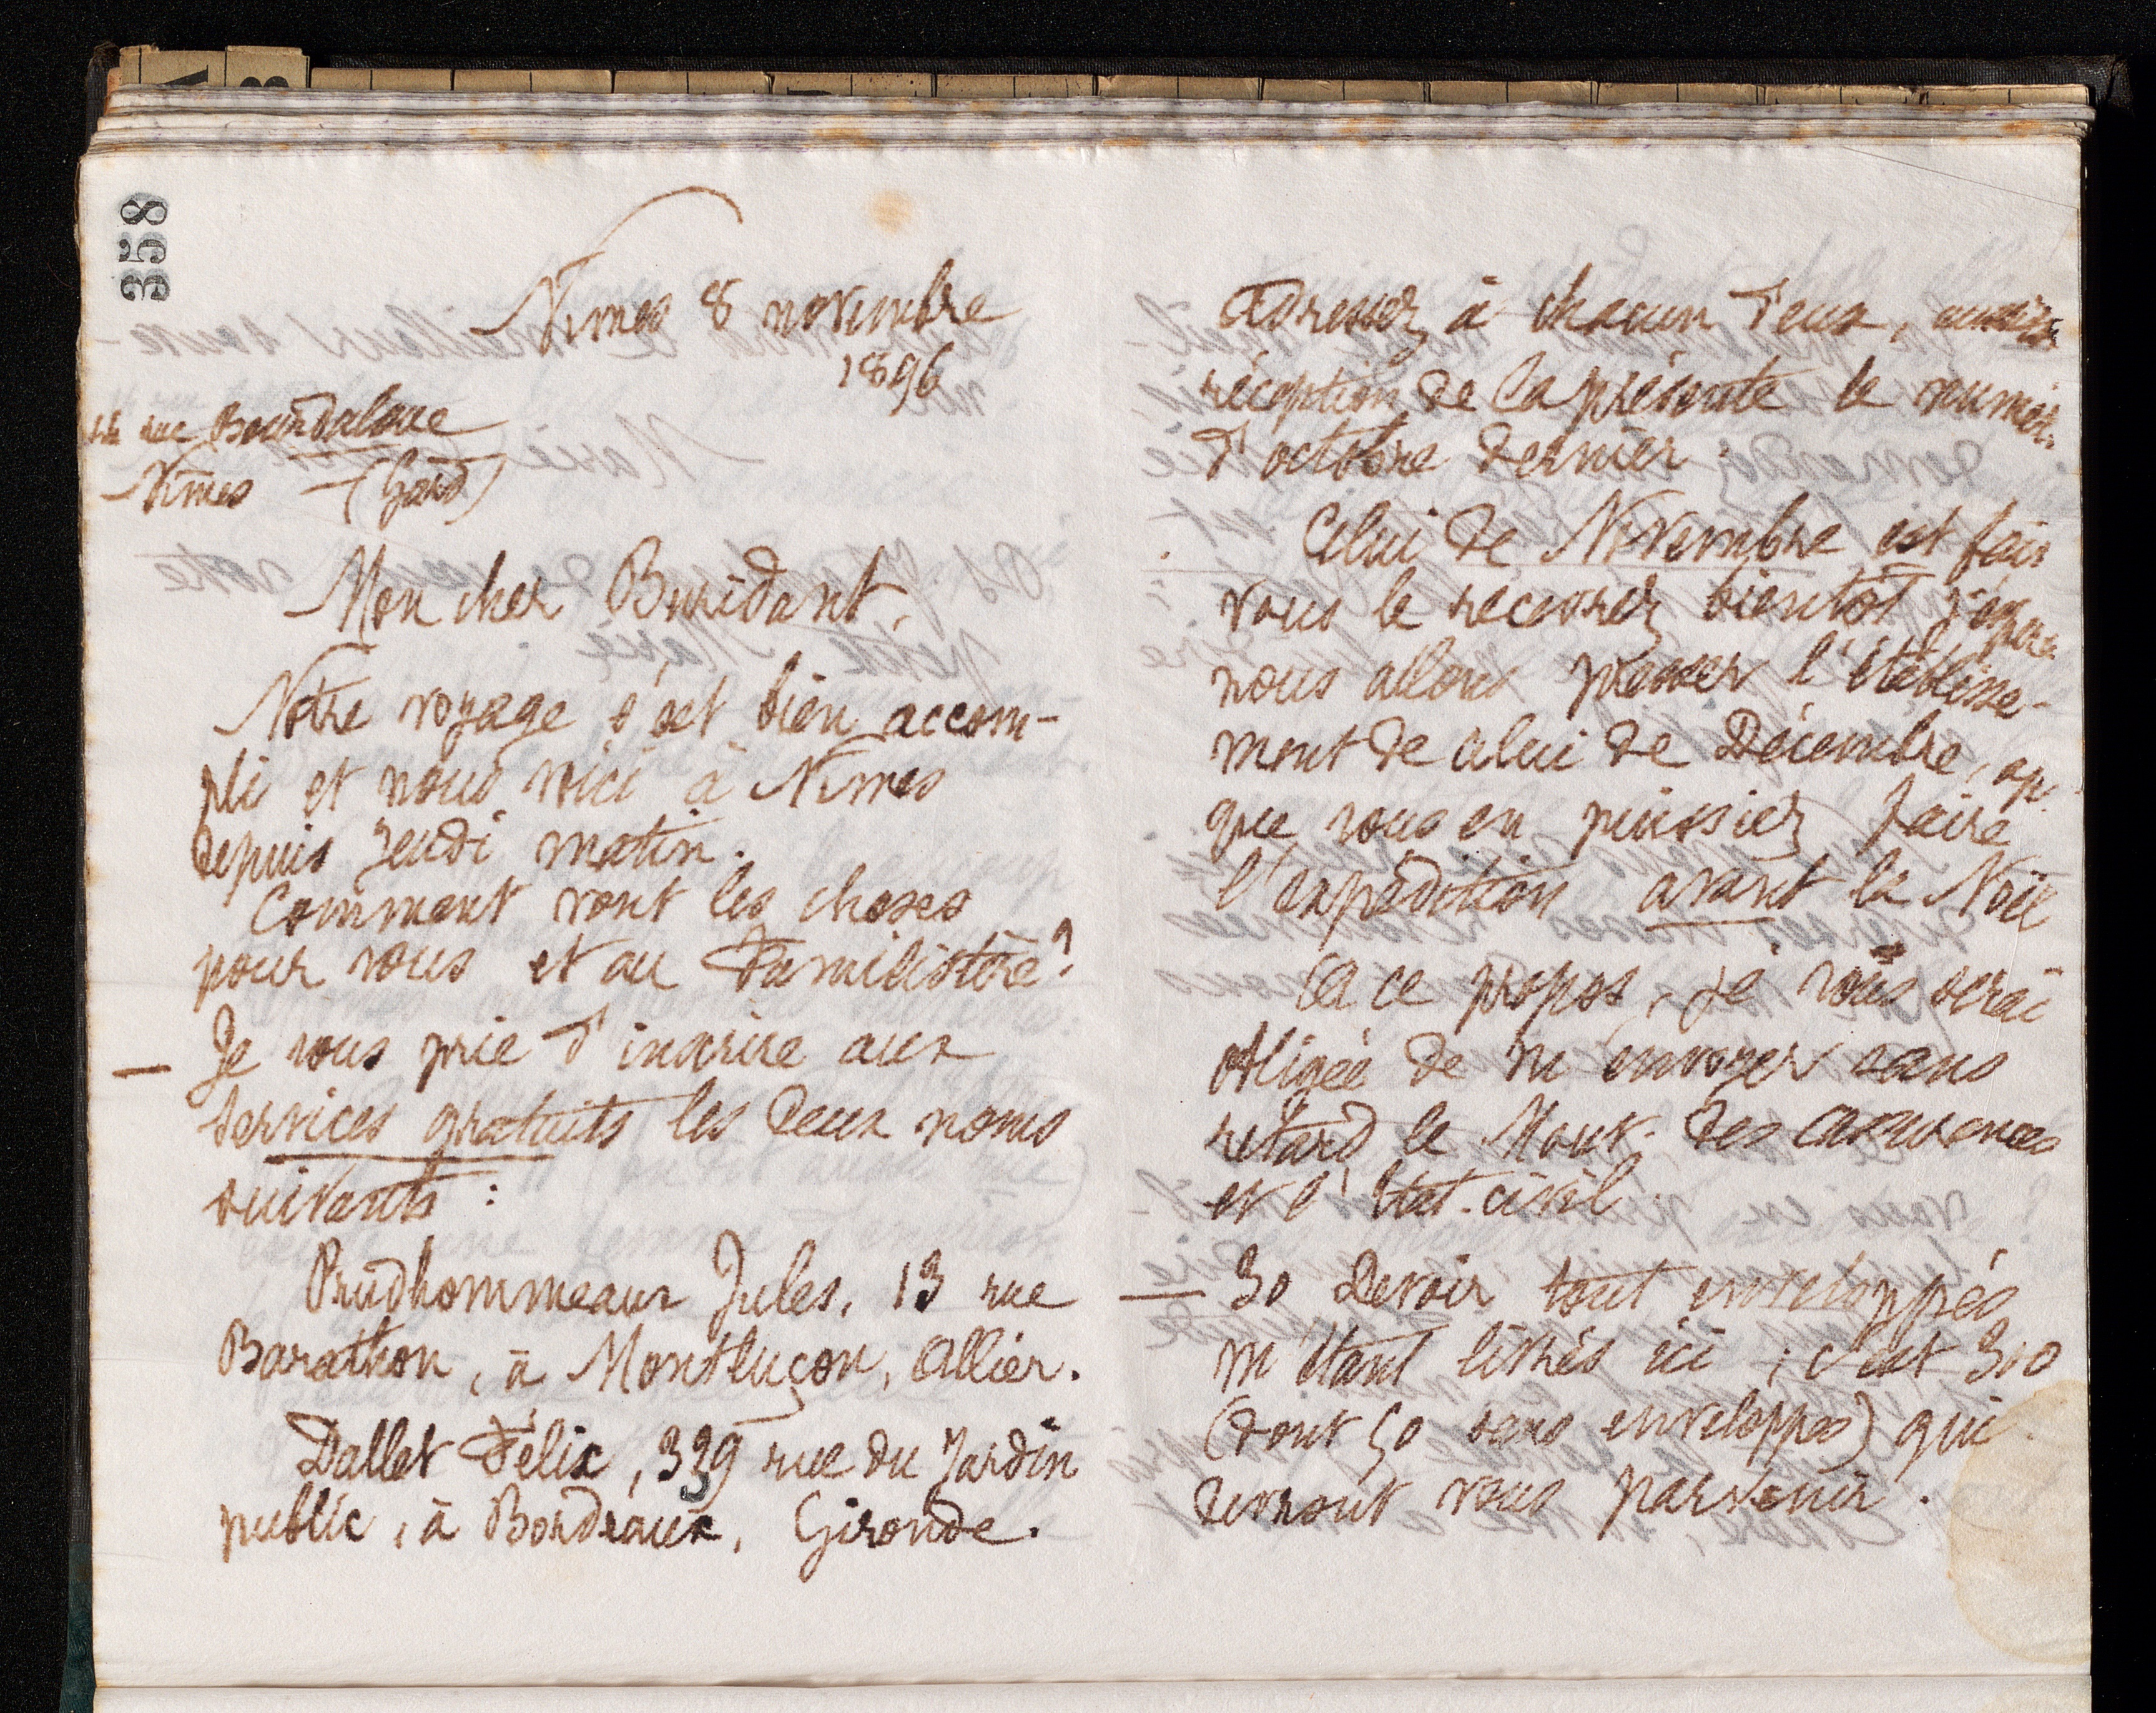 358
Nimes 8 novembre
1896
rue Bourdaloue
Nîmes (Gard)
Mon cher Buridant,
Notre voyage s'est bien accom-
pli et nous voici à Nimes
depuis jeudi matin.
Comment vont les choses
pour vous et au Familistère?
— Je vous prie d'inscrire aux
services gratuits les deux noms
suivants :
Prudhommeaux Jules, 13 rue
Barathon, à Montluçon, Allier.
Dallet Félix, 339 rue du Jardin
public, à Bordeaux, Gironde.
Adressez à chacun d'eux,
réception de la présente le numér.
d'octobre dernier.
Celui de Novembre est fait
vous le recevrez bientôt j'espère
nous allons presser l'établisse-
ment de celui de Décembre,
que vous en puissiez faire
l'expédition avant la Noël
A ce propos, je vous serai
obligée de m'envoyer sans
retard le Mouv. des assurances
et l'Etat-civil.
— 30 Devoir tout enveloppés
m'étant livrés ici ; c'est 300
(dont 50 sans enveloppes) qui
devront vous parvenir.